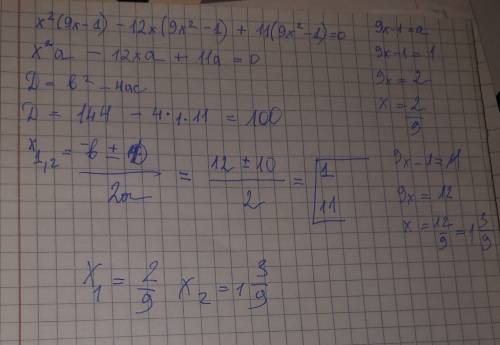 x²(9x-1) - 12x(9x²-1) + 11(9x²-1)=0
x²a - 12xa + 11a = 0
D = b² - 4ac
D = 144 - 4·1·11 = 100
x₁,₂ = -b ± D / 2a = 12 ± 10 / 2 = [1 11
x₁ = 2/9 x₂ = 1 3/9
9x-1=a
9x-1=1
9x=2
x=2/9
9x-1=11
9x=12
x=12/9=1 3/9